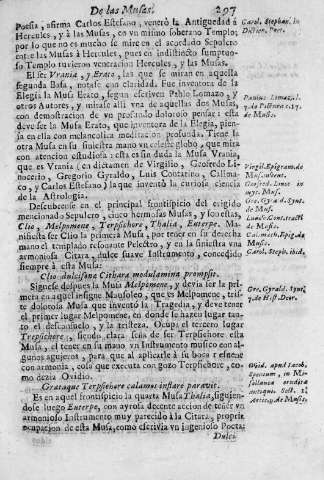 De las Musas. 297
Poesia, afirma Carlos Estefano, venerò la Antiguedad à
Hercules, y à las Musas, en vn mismo soberano Templo;
por lo que no es mucho se mire en el acordado Sepulcro
entre las Musas à Hercules, pues en indistincto sumptuoso
Templo tuvieron veneracion las Musas, y Hercules.
El ser Vrania, y Erato, las que se miran en aquella
segunda Basa, notase con claridad. Fue inventora de la
Elegia la Musa Erato, segun escriven Pablo Lomazo, y
otros Autores, y mirase alli vna de aquellas dos Musas,
con demostracion de vn profundo doloroso pensar: esta
deve ser la Musa Erato, que inventora de la Elegia, pien-
sa en ella con melancolica meditacion profunda. Tiene la
otra en su siniestra mano vn celeste globo, que mira
con atencion estudiosa: esta es sin duda la Musa Vrania,
que es Vrania (en dictamen de Virgilio, Geofredo Li-
nocerio, Gregorio Gyraldo, Luis Contarino, Calima-
co, y Carlos Estefano) la que inventò la curiosa ciencia
de la Astrologia.
Descubrense en el frontispicio del erigido
mencionado Sepulcro, cinco hermosas Musas, y son estas,
Clio, Melpomene, Terpsichore, Thalia, Euterpe. Ma-
nifiesta ser Clio la primera Musa, por tener en su derecha
mano el templado resonante Pelectro, y en la siniestra vna
armoniosa Citara, dulce suave Instrumento, concedido
siempre à esta Musa:
Clio dulcisone Cithara modulamina prompsit.
Siguese despues la Musa Melpomene, y devia ser la pri-
mera en aquel insigne Mausoleo, que es Melpomene, tris-
te dolorosa Musa que inventò la Tragedia, y deve tener
el primer lugar Melpomene, en donde se hazen lugar tan-
to el desconsuelo, y la tristeza. Ocupa el tercero lugar
Terpsichore, siendo clara seña de ser Terpsichore esta
Musa, el tener en su mano vn Instrumento musico con al-
gunos agujeros, para que al aplicarle à su boca resuene
con armonia, cosa que executa con gozo Terpsichore, co-
mo dezia Ovidio.
Grataque Terpsichore calamos inflare paravit.
Es en aquel frontispicio la quarta Musa Thalia, siguien-
dose luego Euterpe, con ayrosa decente accion de tener vn
armonioso Instrumento muy parecido à la Citara, propria
ocupacion de esta Musa, como escrivia vn ingenioso Poeta:
Dulci-
Carol. Stephan. in
Diction. Poet.
Paulus Lomazo l.
7. de Pictura c. 17.
de Musis.
Virgil. Epigram. de
Mus. invent.
Geofred. Linoc. in
Myt. Mus.
Gre. Gyra d. Synt.
de Mus.
Lud. Contarin.
de Musis.
Calimach. Epig. de
Musis.
Carol. Steph. ibid.
Gre. Gyrald. Synt.
7. de Hist. Deor.
Ovid. apud Iacob.